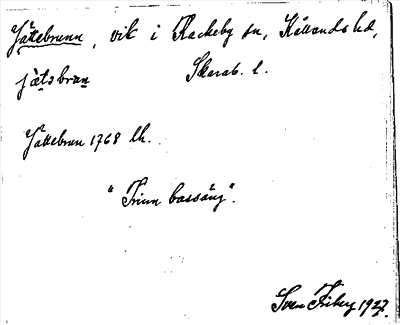 Jättebrunn, vik i Rackeby sn, Kållands hd,
jätəbrun Skarab. l.
Jättebrun 1768 lh.
"Finn bassäng".
Sven Friberg 1927.